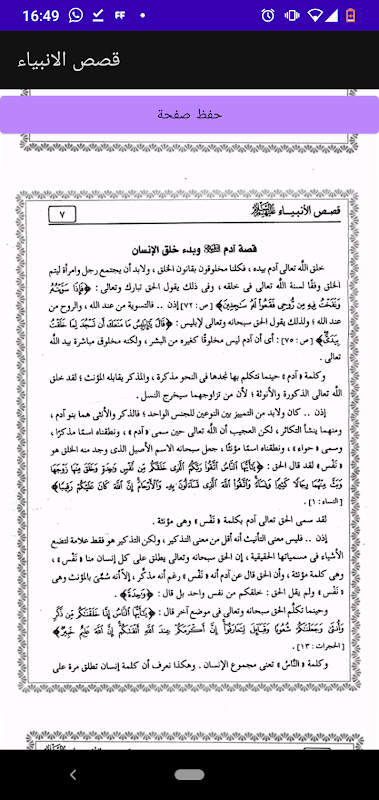 16:49
قصص الانبياء
حفظ صفحة
قصص الأنبياء
٧
قصة آدم وبدء خلق الإنسان
خلق الله تعالى آدم بيده ، فكلنا مخلوقون بقانون الخلق ، ولابد أن يجتمع رجل وامرأة ليتم
الخلق وفقًا لسنة الله تعالى فى خلقه ، وفى ذلك يقول الحق تبارك وتعالى : ﴿فَإِذَا سَوَّيْتُهُ
وَنَفَخْتُ فِيهِ مِن رُّوحِي فَقَعُوا لَهُ سَاجِدِينَ﴾ [ص : ٧٢] إذن .. فالتسوية من عند الله ، والروح من
عند الله ؛ ولذلك يقول الحق سبحانه وتعالى لإبليس : ﴿قَالَ يَا إِبْلِيسُ مَا مَنَعَكَ أَن تَسْجُدَ لِمَا خَلَقْتُ
بِيَدَيَّ﴾ [ص : ٧٥] : أى أن آدم ليس مخلوقًا كغيره من البشر ، ولكنه مخلوق مباشرة بيد الله
تعالى .
وكلمة « آدم » حينما نتكلم بها نجدها فى النحو مذكرة ، والمذكر يقابله المؤنث ؛ لقد خلق
الله تعالى الذكورة والأنوثة ؛ لأن من تزاوجهما سيخرج النسل .
إذن .. كان ولابد من التمييز بين النوعين للجنس الواحد ؛ فالذكر والأنثى هما بنو آدم ،
ومنهما ينشأ التكاثر ، لكن العجيب أن الله تعالى حين سمى « آدم » ، ونطقناه اسمًا مذكرًا ،
وسمى « حواء » ، ونطقناه اسمًا مؤنثًا ، جعل سبحانه الاسم الأصيل الذى وجد منه الخلق هو
« نَفْس » لقد قال الحق : ﴿يَا أَيُّهَا النَّاسُ اتَّقُوا رَبَّكُمُ الَّذِي خَلَقَكُم مِّن نَّفْسٍ وَاحِدَةٍ وَخَلَقَ مِنْهَا زَوْجَهَا
وَبَثَّ مِنْهُمَا رِجَالًا كَثِيرًا وَنِسَاءً وَاتَّقُوا اللَّهَ الَّذِي تَسَاءَلُونَ بِهِ وَالْأَرْحَامَ إِنَّ اللَّهَ كَانَ عَلَيْكُمْ رَقِيبًا﴾
[النساء : ١] .
لقد سمى الحق تعالى آدم بكلمة « نَفْس » وهى مؤنثة .
إذن .. فليس معنى التأنيث أنه أقل من معنى التذكير ، ولكن التذكير هو فقط علامة لتضع
الأشياء فى مسمياتها الحقيقية ، إن الحق سبحانه وتعالى يطلق على كل إنسان منا « نَفْس » ،
وهى كلمة مؤنثة ، وأن الحق قال عن آدم أنه « نَفْس » رغم أنه مذكّر ، إلاّ أنه سُمِّىَ بالمؤنث وهى
« نَفْس » ولم يقل الحق : خلقكم من نفس واحد بل قال : ﴿وَاحِدَةٍ﴾ .
وحينما تكلّم الحق سبحانه وتعالى فى موضع آخر قال : ﴿يَا أَيُّهَا النَّاسُ إِنَّا خَلَقْنَاكُم مِّن ذَكَرٍ
وَأُنثَى وَجَعَلْنَاكُمْ شُعُوبًا وَقَبَائِلَ لِتَعَارَفُوا إِنَّ أَكْرَمَكُمْ عِندَ اللَّهِ أَتْقَاكُمْ إِنَّ اللَّهَ عَلِيمٌ خَبِيرٌ﴾
[الحجرات : ١٣] .
وكلمة « النَّاسُ » تعنى مجموع الإنسان . وهكذا نعرف أن كلمة إنسان تطلق مرة على